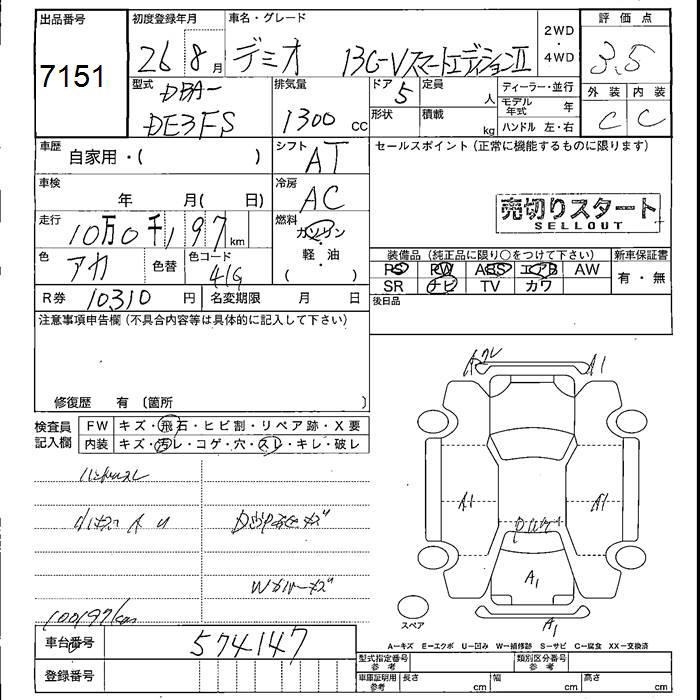 出品番号
7151
初度登録年月
26 8 月
車名・グレード
デミオ 13C-Vスマートエディション II
2WD
・
4WD
評価点
3.5
外装 内装
C C
型式
DBA-
DE3FS
排気量
1300 cc
ドア 5
定員 人
形状
積載 kg
ディーラー・並行
モデル年式 年
ハンドル 左・右
車歴
自家用・( )
シフト
AT
セールスポイント (正常に機能するものに限ります)
車検
年 月( 日)
冷房
AC
売切りスタート
SELLOUT
走行
10万0千197km
燃料
ガソリン
・
軽・油
( )
色
アカ
色替
色コード
41G
装備品 (純正品に限り○をつけて下さい)
新車保証書
PS PW ABS エアB AW
有・無
SR ナビ TV カワ
R券 10310 円
名変期限 月 日
後日品
注意事項申告欄 (不具合内容等は具体的に記入して下さい)
修復歴 有 (箇所 )
検査員
記入欄
FW キズ・飛石・ヒビ割・リペア跡・X要
内装 キズ・汚レ・コゲ・穴・スレ・キレ・破レ
ハンドルスレ
100197km
A1
A1
A1
A1
A1
スペア
A=キズ E=エクボ U=凹み W=補修跡 S=サビ C=腐食 XX=交換済
車台番号
574147
登録番号
型式指定番号
参考
類別区分番号
参考
車庫証明用
参考
長さ cm
幅 cm
高さ cm